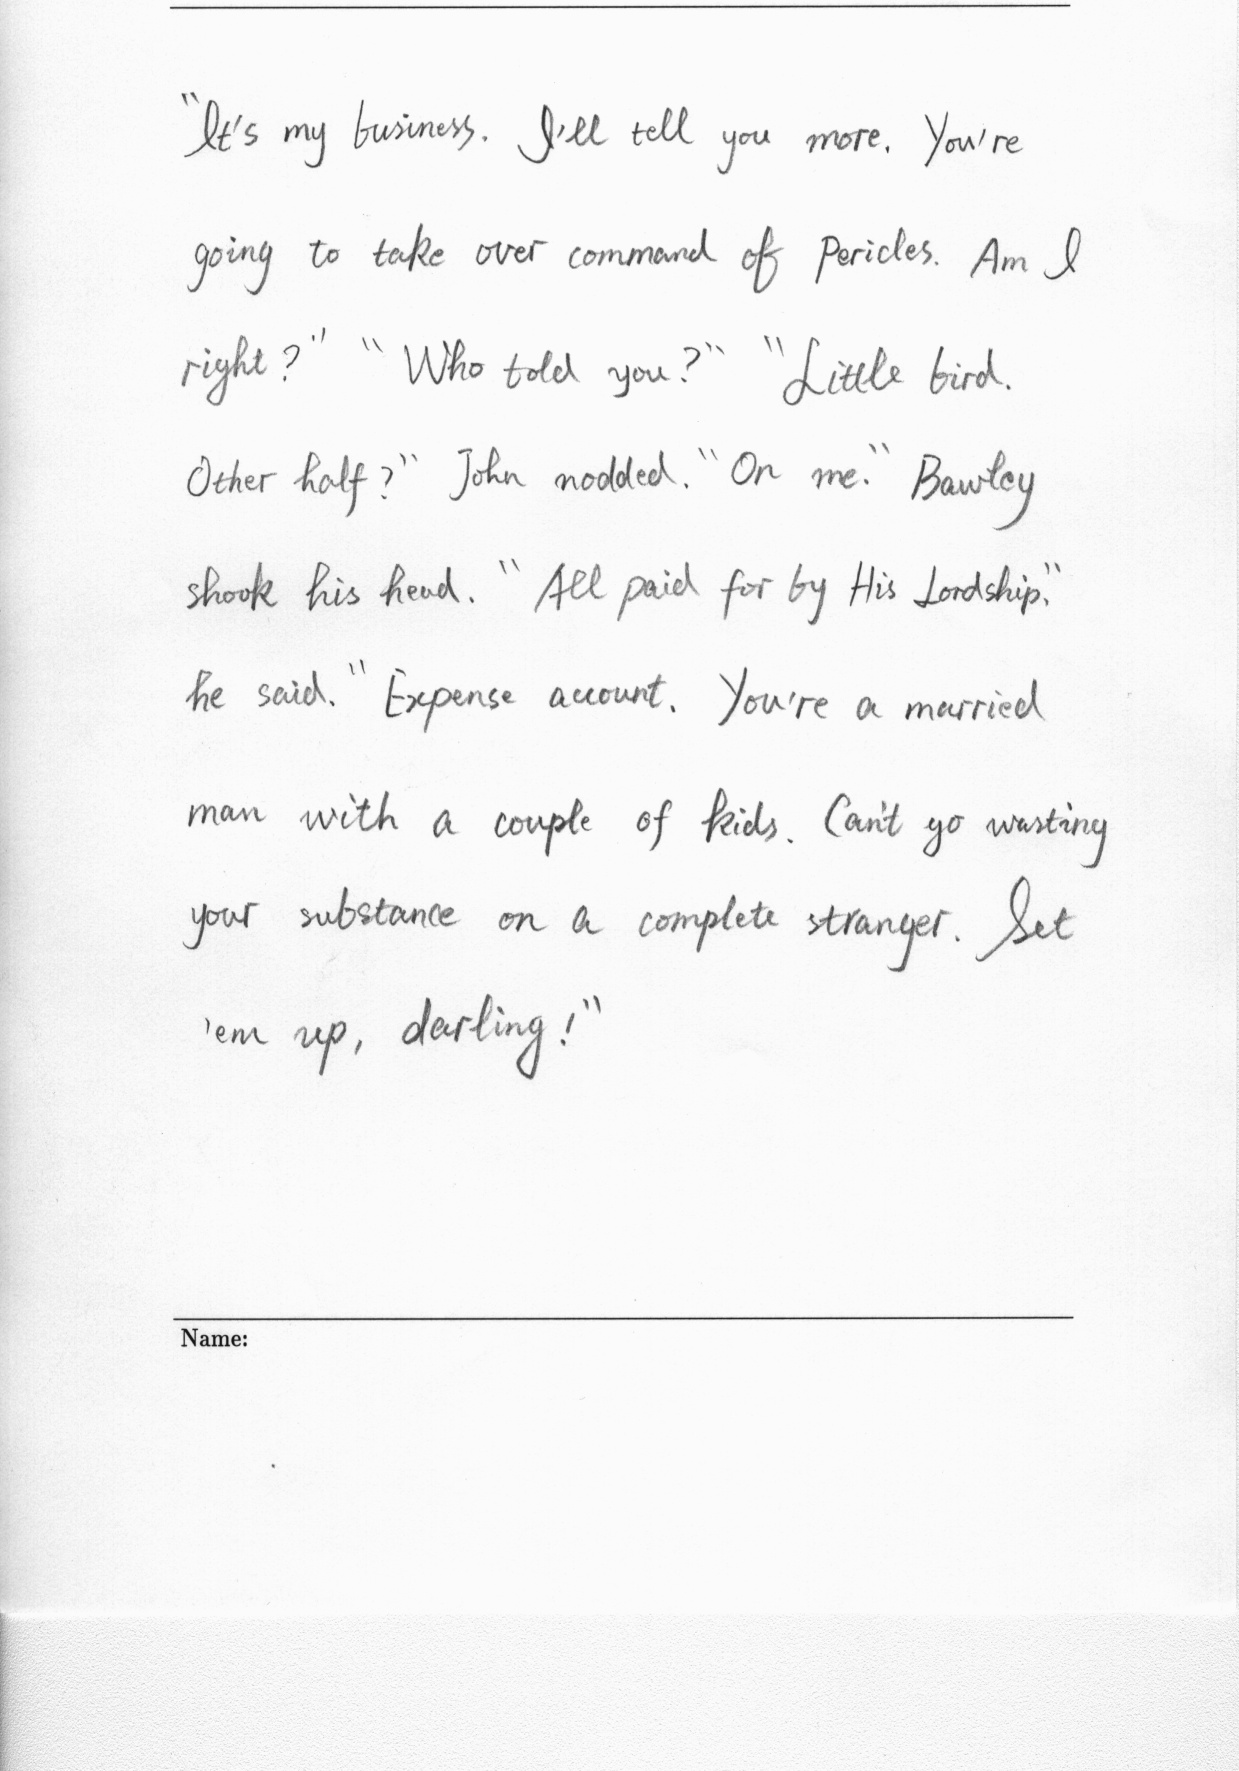 "It's my business. I'll tell you more. You're
going to take over command of Pericles. Am I
right?" "Who told you?" "Little bird.
Other half?" John nodded. "On me." Bawley
shook his head. "All paid for by His Lordship,"
he said. "Expense account. You're a married
man with a couple of kids. Can't go wasting
your substance on a complete stranger. Set
'em up, darling!"
Name: